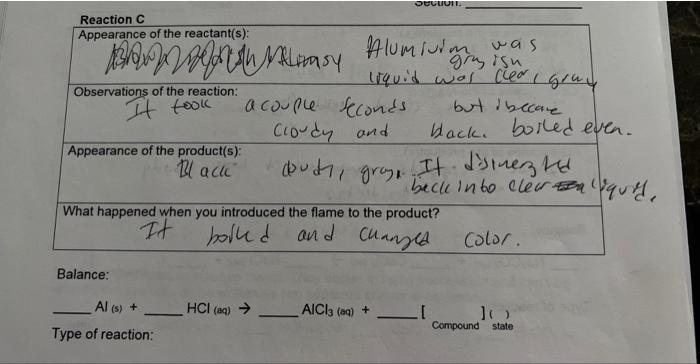 Section:
Reaction C
Appearance of the reactant(s):
Alumivim was
gray ish
liquid was clear, gray
Observations of the reaction:
It took a couple seconds but i became
cloudy and black. boiled even.
Appearance of the product(s):
Black cloudy, gray. It
back into clear liquid.
What happened when you introduced the flame to the product?
It boiled and changed color.
Balance:
____ Al (s) + ____ HCl (aq) → ____ AlCl₃ (aq) + ___[ ]( )
Compound state
Type of reaction: